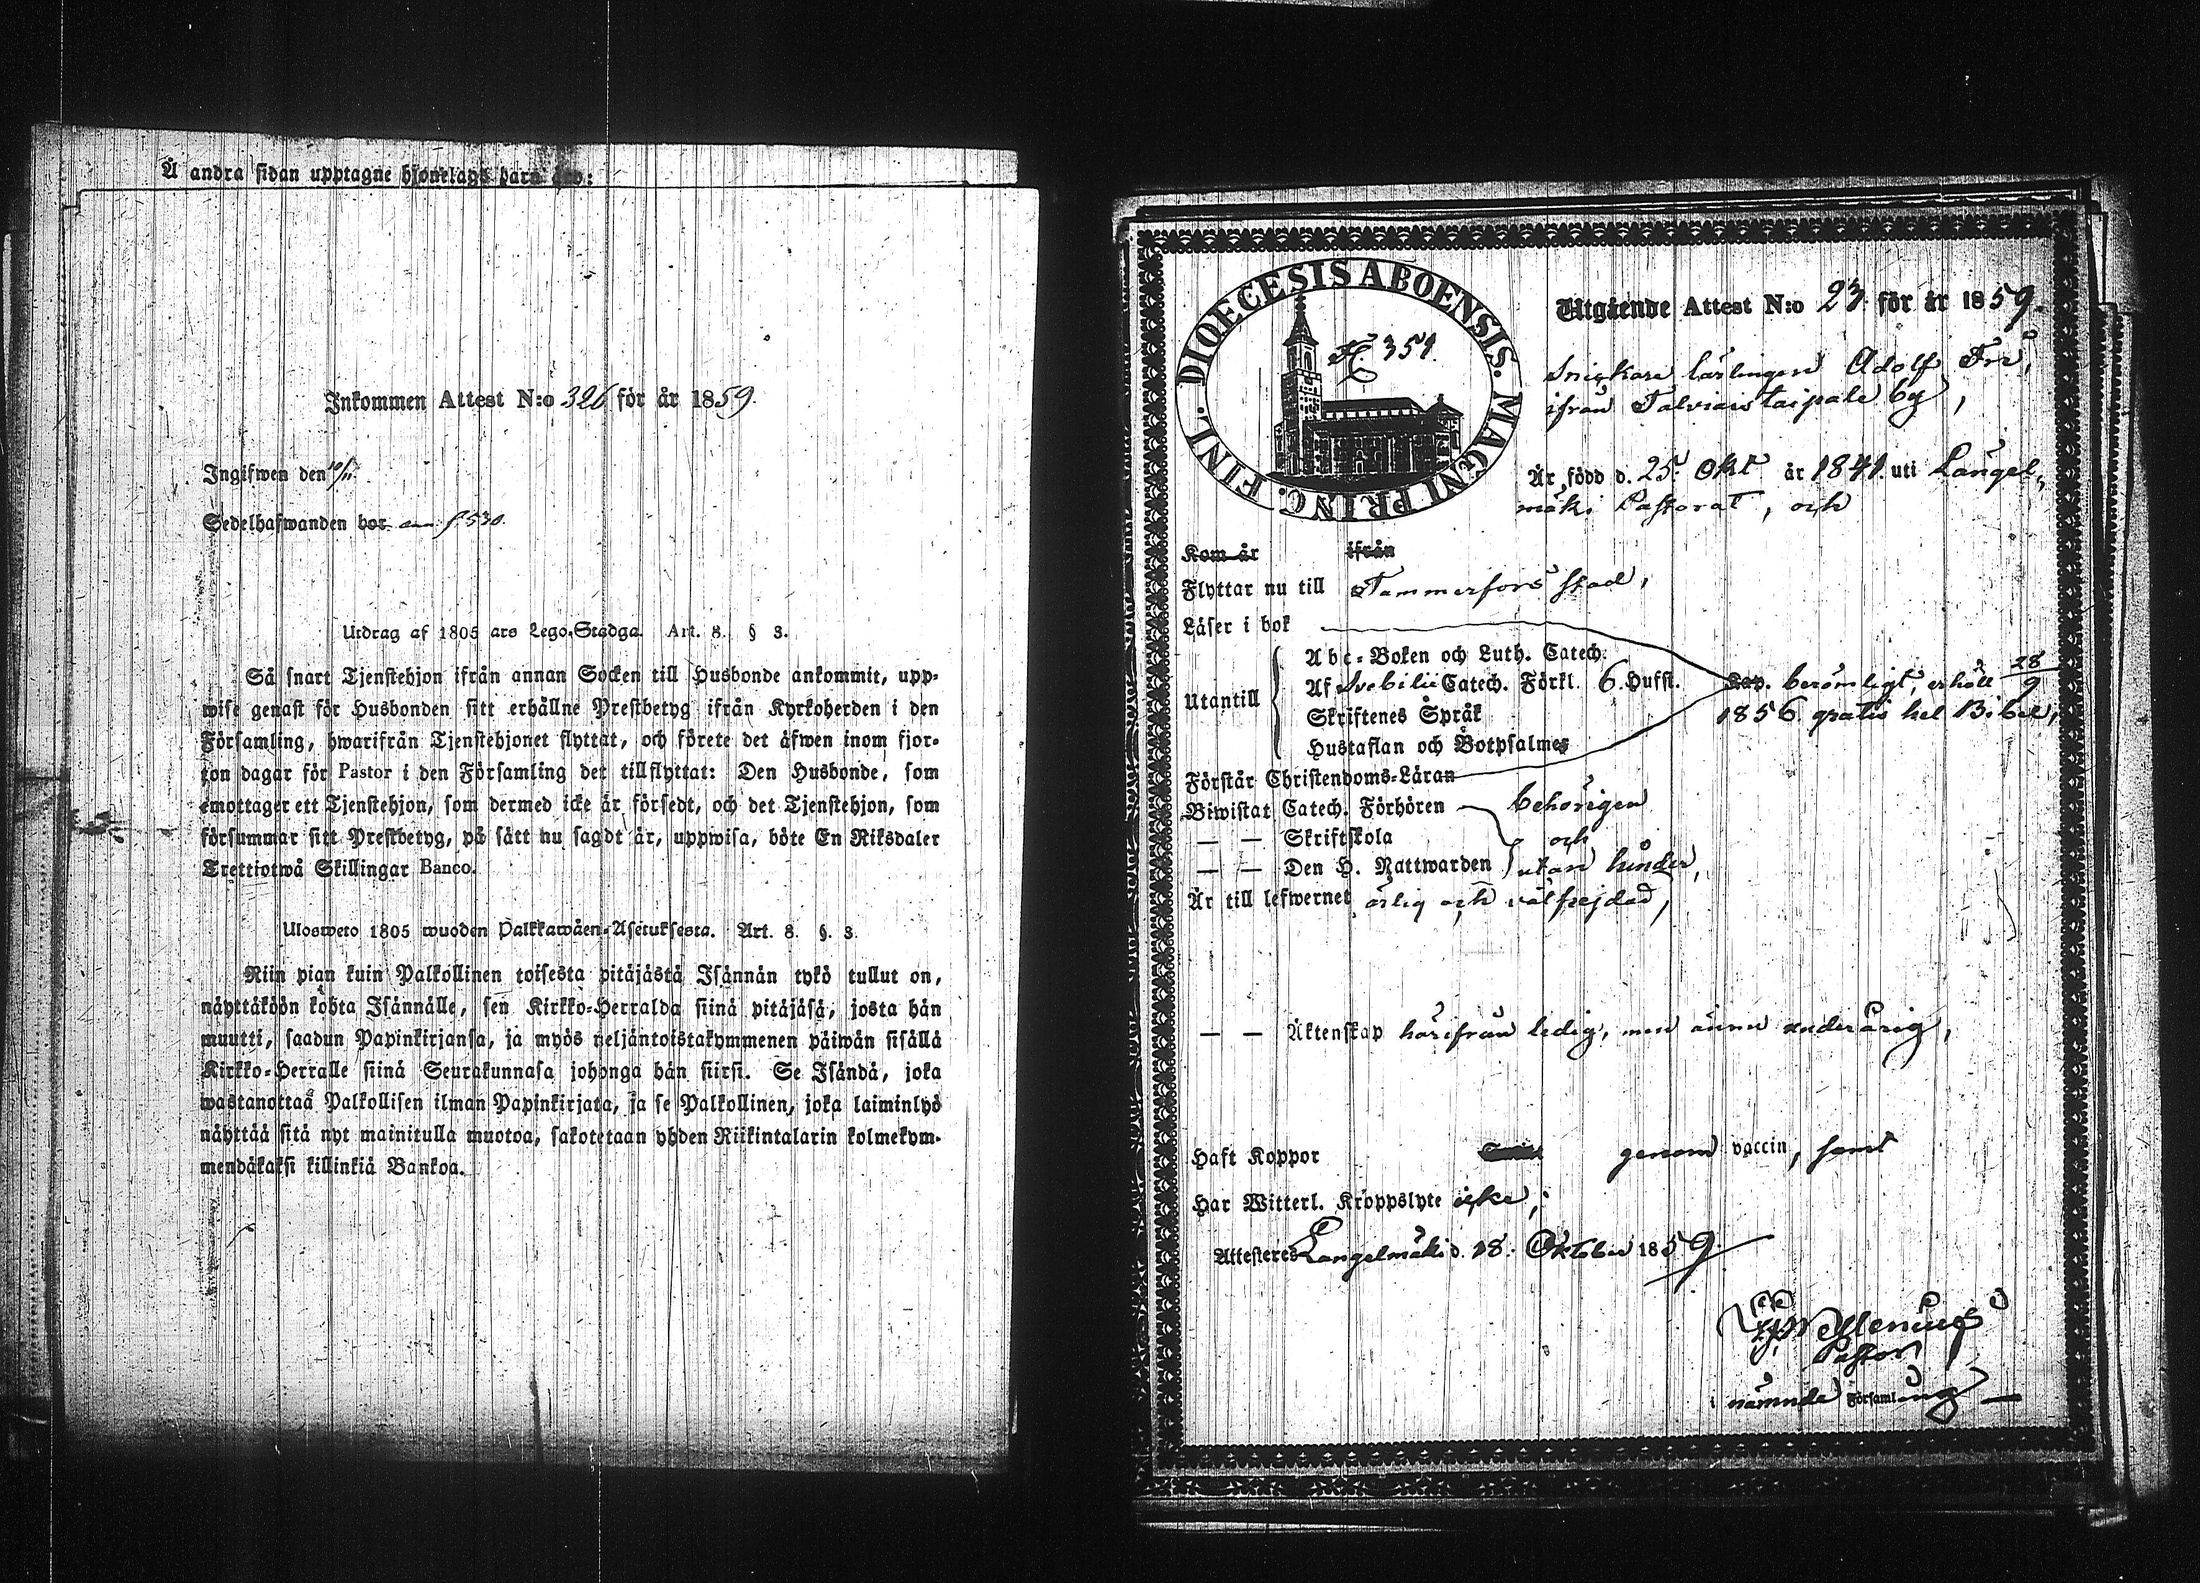 Å andra sidan upptagne hjonelags barn äro:
Inkommen Attest N:o 326 för år 1859.
Ingifwen den 10/11
Sedelhafwanden bor an p 530.
Utdrag af 1805 ars Lego-Stadga. Art. 8. § 3.
Så snart Tjenstehjon ifrån annan Socken till Husbonde ankommit, upp-
wise genast för Husbonden sitt erhållne Prestbetyg ifrån Kyrkoherden i den
Församling, hwarifrån Tjenstehjonet flyttat, och förete det äfwen inom fjor-
ton dagar för Pastor i den Församling det tillflyttat: Den Husbonde, som
emottager ett Tjenstehjon, som dermed icke är försedt, och det Tjenstehjon, som
försummar sitt Prestbetyg, på sätt nu sagdt är, uppwisa, böte En Riksdaler
Trettiotwå Skillingar Banco.
Ulosweto 1805 wuoden Palkkawäen-Asetuksesta. Art. 8. §. 3.
Niin pian kuin Palkollinen toisesta pitäjästä Isännän tykö tullut on,
näyttäköön kohta Isännälle, sen Kirkko-Herralda siinä pitäjäsä, josta hän
muutti, saadun Papinkirjansa, ja myös neljäntoistakymmenen päiwän sisällä
Kirkko-Herralle siinä Seurakunnasa johonga hän siirsi. Se Isändä, joka
wastanottaa Palkollisen ilman Papinkirjata, ja se Palkollinen, joka laiminlyö
näyttää sitä nyt mainitulla muotoa, sakotetaan yhden Riikintalarin kolmekym-
mendäkaksi killinkiä Bankoa.
DIOECESIS ABOENSIS. MAGNI PRINC. FINL.
H. 351.
Utgående Attest N:o 23 för år 1859.
Snickare lärlingen Adolf Fri,
ifrån Talviaistaipale by,
Är född d. 25 Okt år 1841 uti Längel-
mäki Pastorat, och
Kom år ifrån
Flyttar nu till Tammerfors stad,
Läser i bok
Utantill
Abc-Boken och Luth. Catech.
Af Svebilii Catech. Förkl. 6. Hufst. Kap. berömligt, erhöll 28/9
Skriftenes Språk 1856 gratis hel Bibel,
Hustaflan och Botpsalmer
Förstår Christendoms-Läran
Biwistat Catech. Förhören behörigen
— — Skriftskola och
— — Den H. Nattwarden utan hinder,
Är till lefwernet ärlig och välfrejdad,
— — Äktenskap härifrån ledig, men ännu underårig,
Haft Koppor genom vaccin, samt
Har Witterl. Kroppslyte icke;
Attesteres Längelmäki d. 18. Oktober 1859.
Pastor
i nämnde Församling